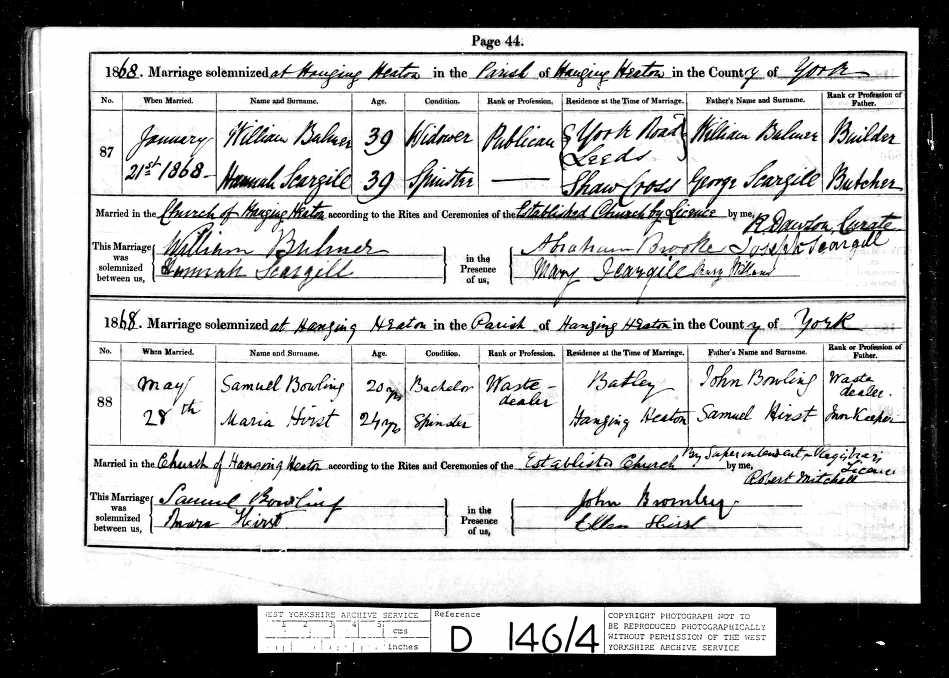 Page 44.
1868. Marriage solemnized at Hanging Heaton in the Parish of Hanging Heaton in the County of York
No. When Married. Name and Surname. Age. Condition. Rank or Profession. Residence at the Time of Marriage. Father's Name and Surname. Rank or Profession of Father.
87 January 21st 1868 William Bulmer 39 Widower Publican York Road Leeds William Bulmer Builder
Hannah Scargill 39 Spinster — Shaw Cross George Scargill Butcher
Married in the Church of Hanging Heaton according to the Rites and Ceremonies of the Established Church by Licence by me, R Dawson, Curate
This Marriage was solemnized between us, William Bulmer in the Presence of us, Abraham Brooke Joseph Scargill
Hannah Scargill Mary Scargill
1868. Marriage solemnized at Hanging Heaton in the Parish of Hanging Heaton in the County of York
No. When Married. Name and Surname. Age. Condition. Rank or Profession. Residence at the Time of Marriage. Father's Name and Surname. Rank or Profession of Father.
88 May 28th Samuel Bowling 20 yrs Bachelor Waste-dealer Batley John Bowling Waste dealer.
Maria Hirst 24 yrs Spinster Hanging Heaton Samuel Hirst Inn Keeper
Married in the Church of Hanging Heaton according to the Rites and Ceremonies of the Established Church By Superintendent Registrar's Licence by me, Robert Mitchell
This Marriage was solemnized between us, Samuel Bowling in the Presence of us, John Bromley
Hirst Ellen Hirst
WEST YORKSHIRE ARCHIVE SERVICE
1 2 3 4 5 cms
inches
Reference
D 146/4
COPYRIGHT PHOTOGRAPH NOT TO
BE REPRODUCED PHOTOGRAPHICALLY
WITHOUT PERMISSION OF THE WEST
YORKSHIRE ARCHIVE SERVICE